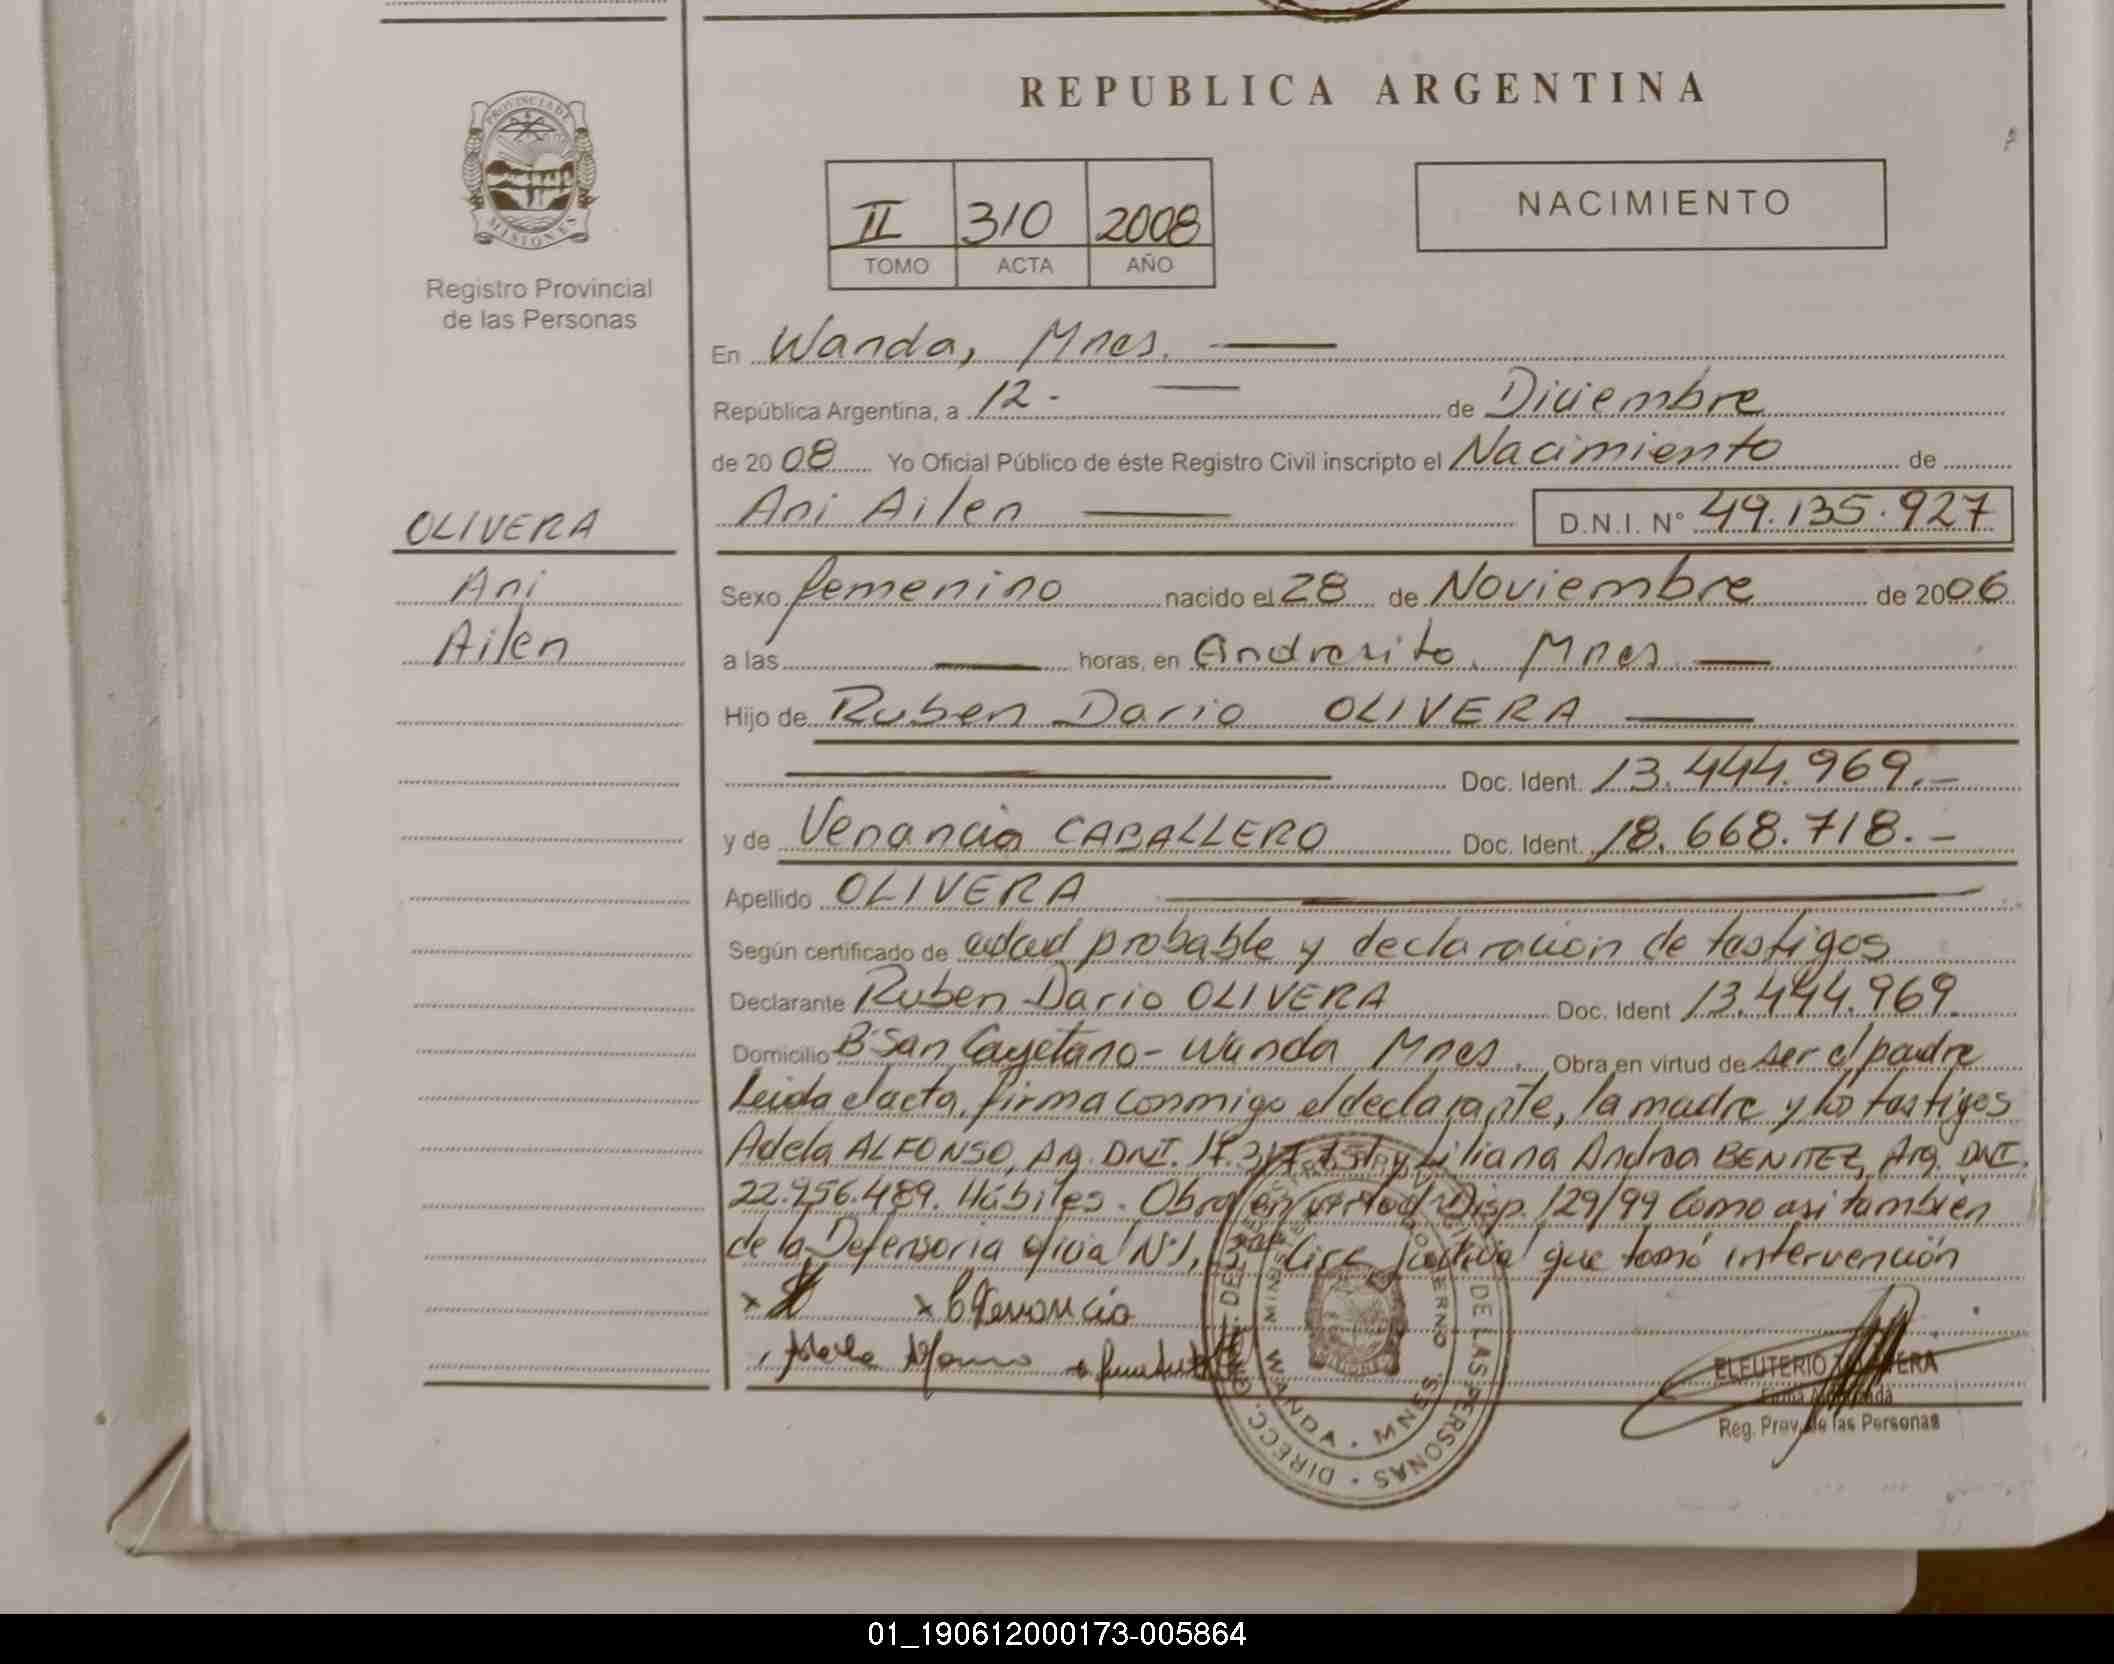 REPUBLICA ARGENTINA
PROVINCIA DE
MISIONES
Registro Provincial
de las Personas
II 310 2008
TOMO ACTA AÑO
NACIMIENTO
En Wanda, Mnes.
República Argentina, a 12 - de Diciembre
de 20 08 Yo Oficial Público de éste Registro Civil inscripto el Nacimiento de
OLIVERA
Ani Ailen D.N.I. N° 49.135.927
Ani
Ailen
Sexo femenino nacido el 28 de Noviembre de 2006
a las horas, en Andresito, Mnes
Hijo de Ruben Dario OLIVERA
Doc. Ident. 13.444.969.-
y de Venancia CABALLERO Doc. Ident. 18.668.718.-
Apellido OLIVERA
Según certificado de edad probable y declaracion de testigos
Declarante Ruben Dario OLIVERA Doc. Ident 13.444.969.
Domicilio B San Cayetano - Wanda Mnes. Obra en virtud de ser el padre
Leida el acta, firma conmigo el declarante, la madre y los testigos
Adela ALFONSO, Arg. DNI. y Liliana Andrea BENITEZ, Arg. DNI.
22.956.489. Hábiles. Obra en virtud Disp. 129/99 Como asi también
de la Defensoria oficial N°1, Circ. Judicial que tomó intervención
x x Venancia
Adela
DIRECC. DE LAS PERSONAS
WANDA - MNES.
ELEUTERIO
Reg. Prov. de las Personas
01_190612000173-005864